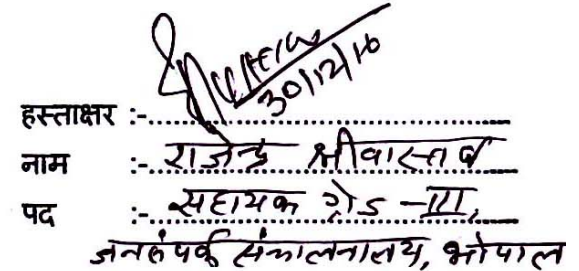 30/12/16
हस्ताक्षर :-
नाम :- राजेन्द्र श्रीवास्तव
पद :- सहायक ग्रेड -III,
जनसंपर्क संचालनालय, भोपाल